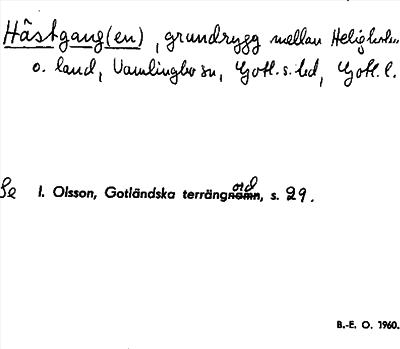 Hästgang(en), grundrygg mellan Heligholm
o. land, Vamlingbo sn, Gotl. s. hd, Gotl. l.
Se I. Olsson, Gotländska terrängord, s. 29.
B.-E. O. 1960.